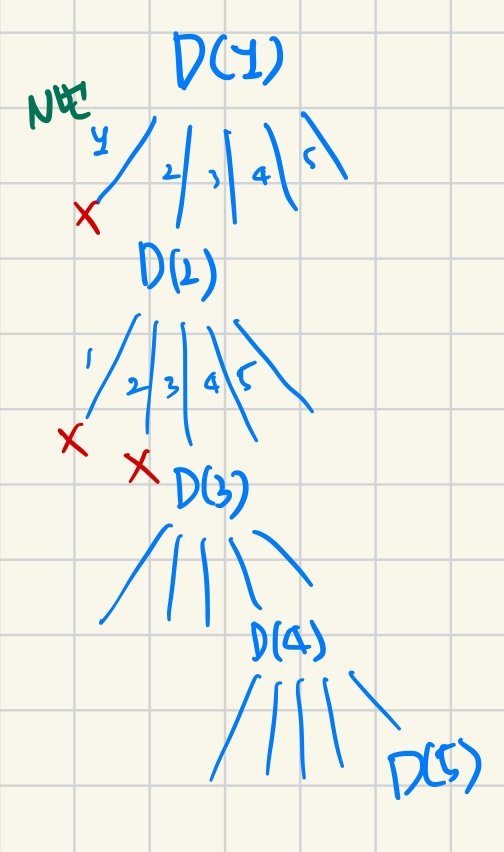 D(1)
N번
1 2 3 4 5
X
D(2)
1 2 3 4 5
X X
D(3)
D(4)
D(5)